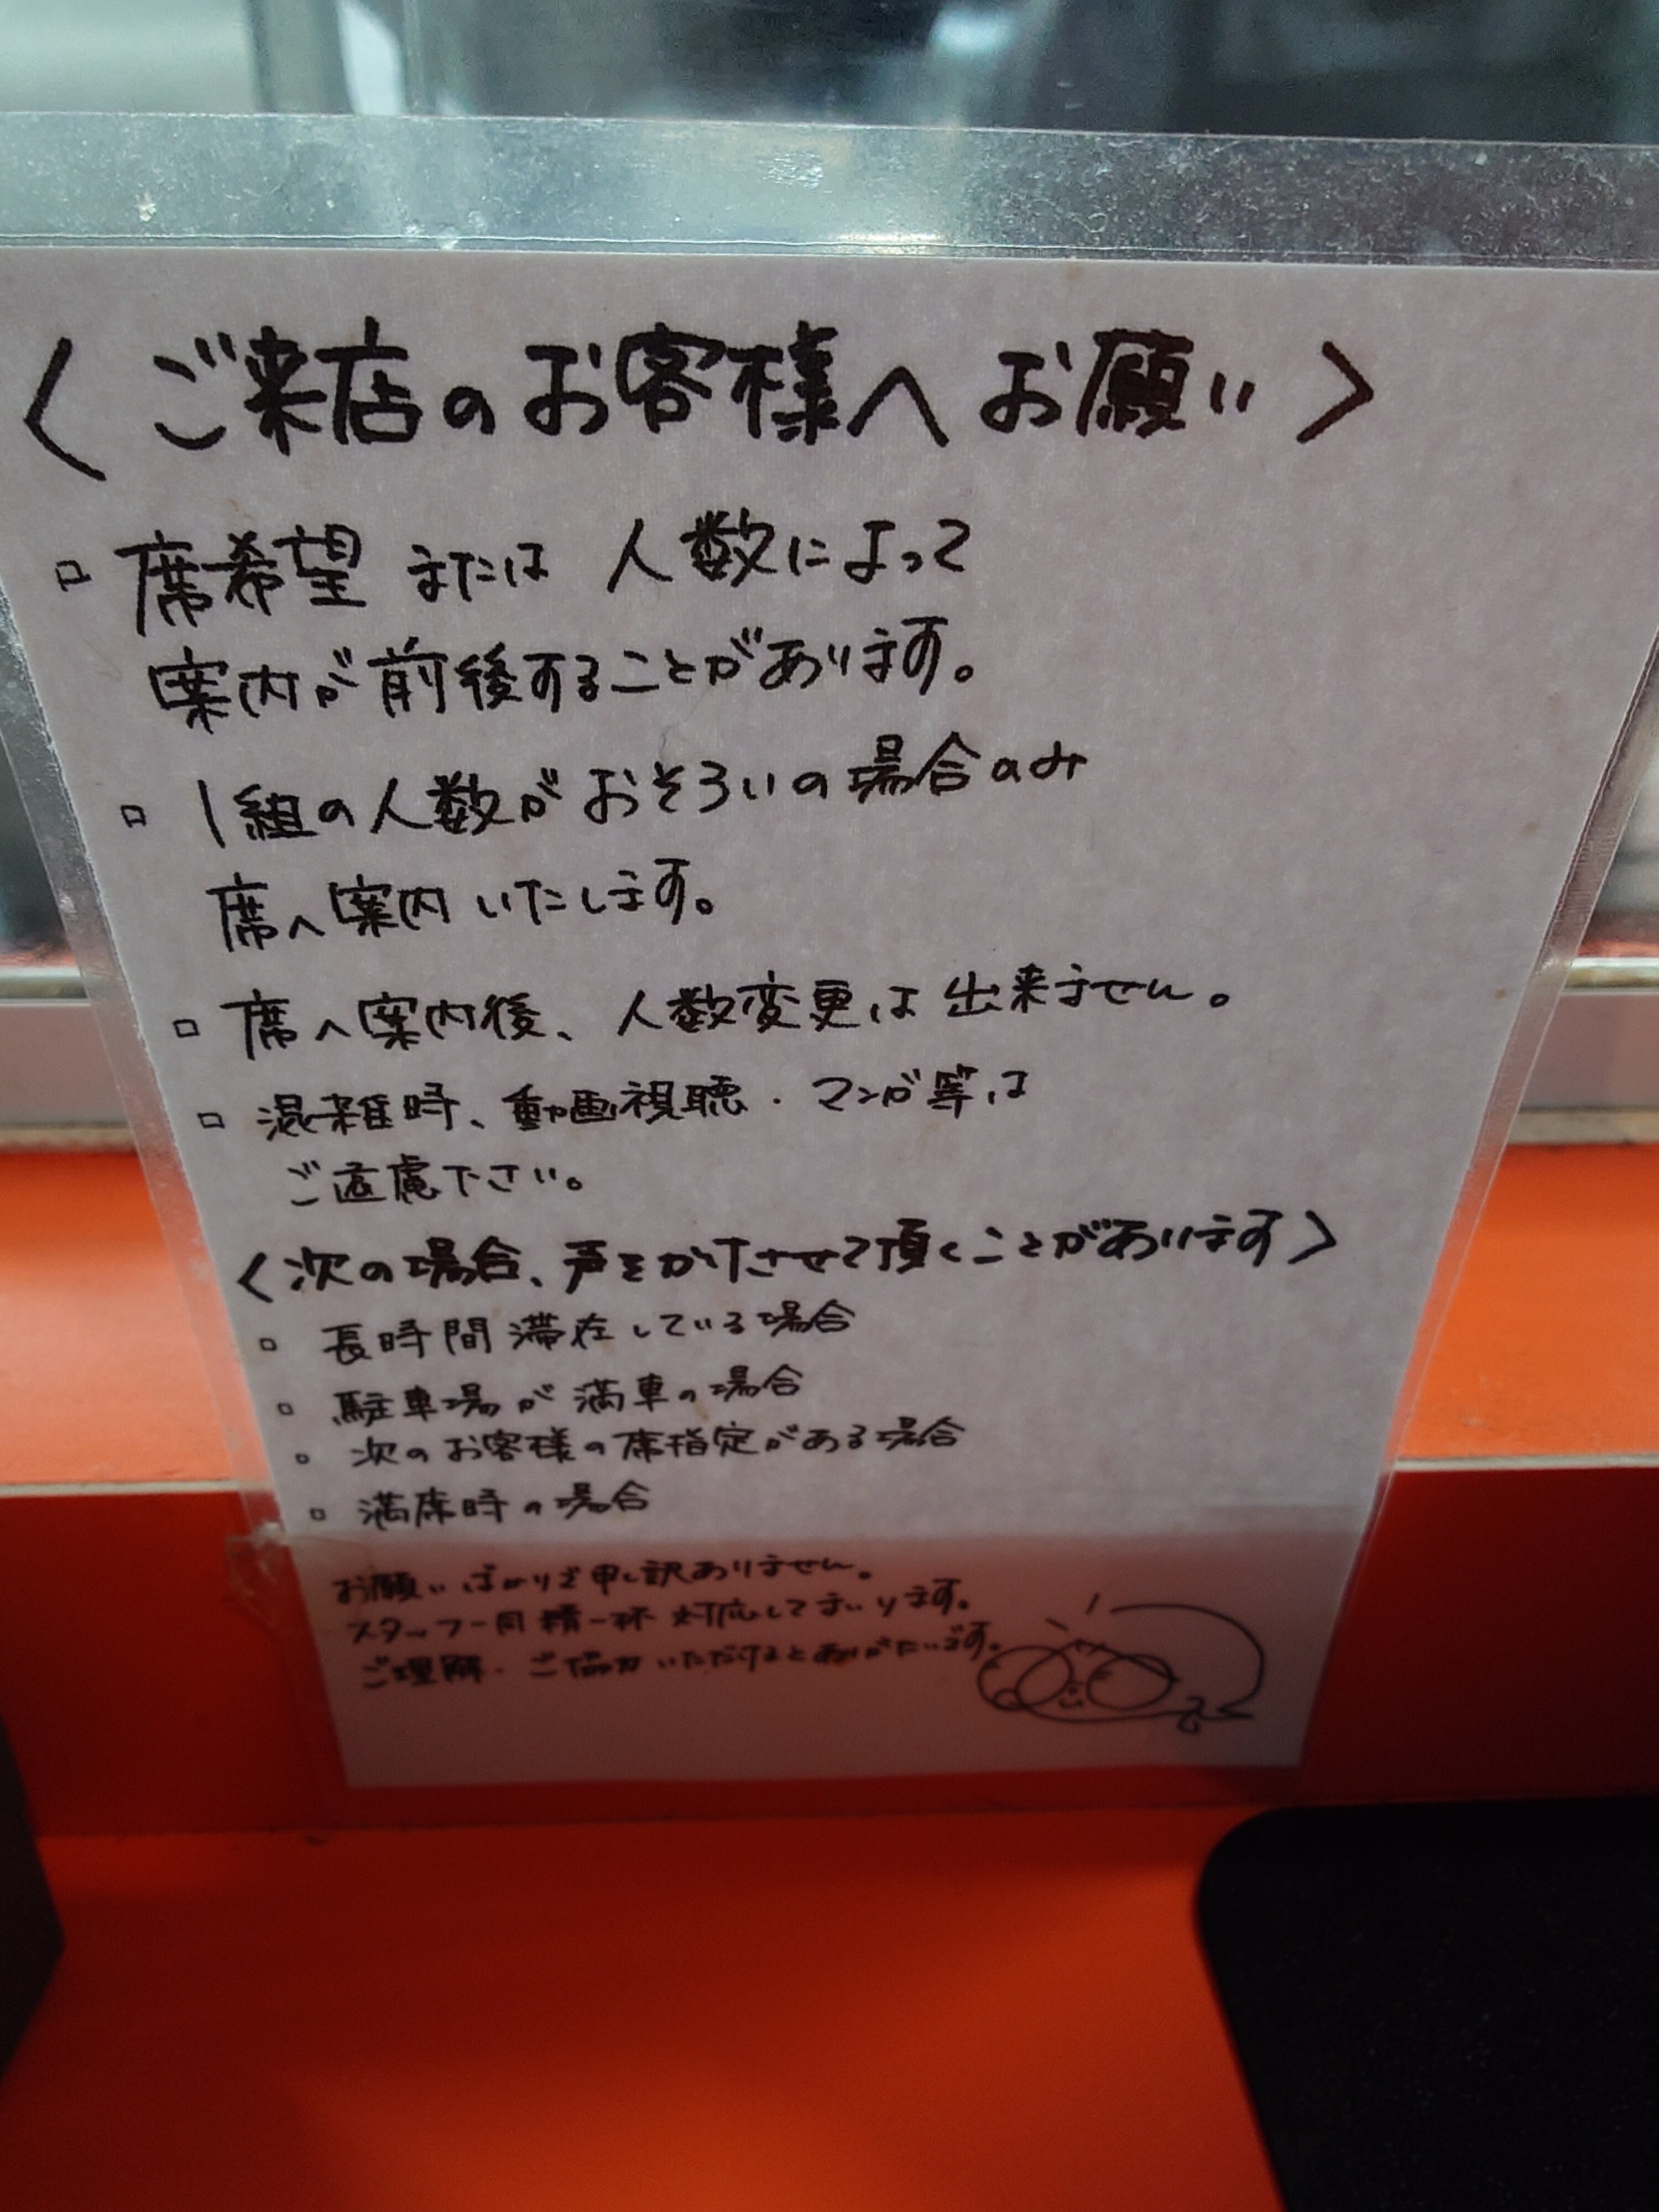 〈ご来店のお客様へお願い〉
□ 席希望 または 人数によって
案内が前後することがあります。
□ 1組の人数がおそろいの場合のみ
席へ案内いたします。
□ 席へ案内後、人数変更は出来ません。
□ 混雑時、動画視聴・マンガ等は
ご遠慮下さい。
〈次の場合、声をかけさせて頂くことがあります〉
□ 長時間滞在している場合
□ 駐車場が満車の場合
□ 次のお客様の席指定がある場合
□ 満席時の場合
お願いばかりで申し訳ありません。
スタッフ一同精一杯対応してまいります。
ご理解・ご協力いただけるとありがたいです。